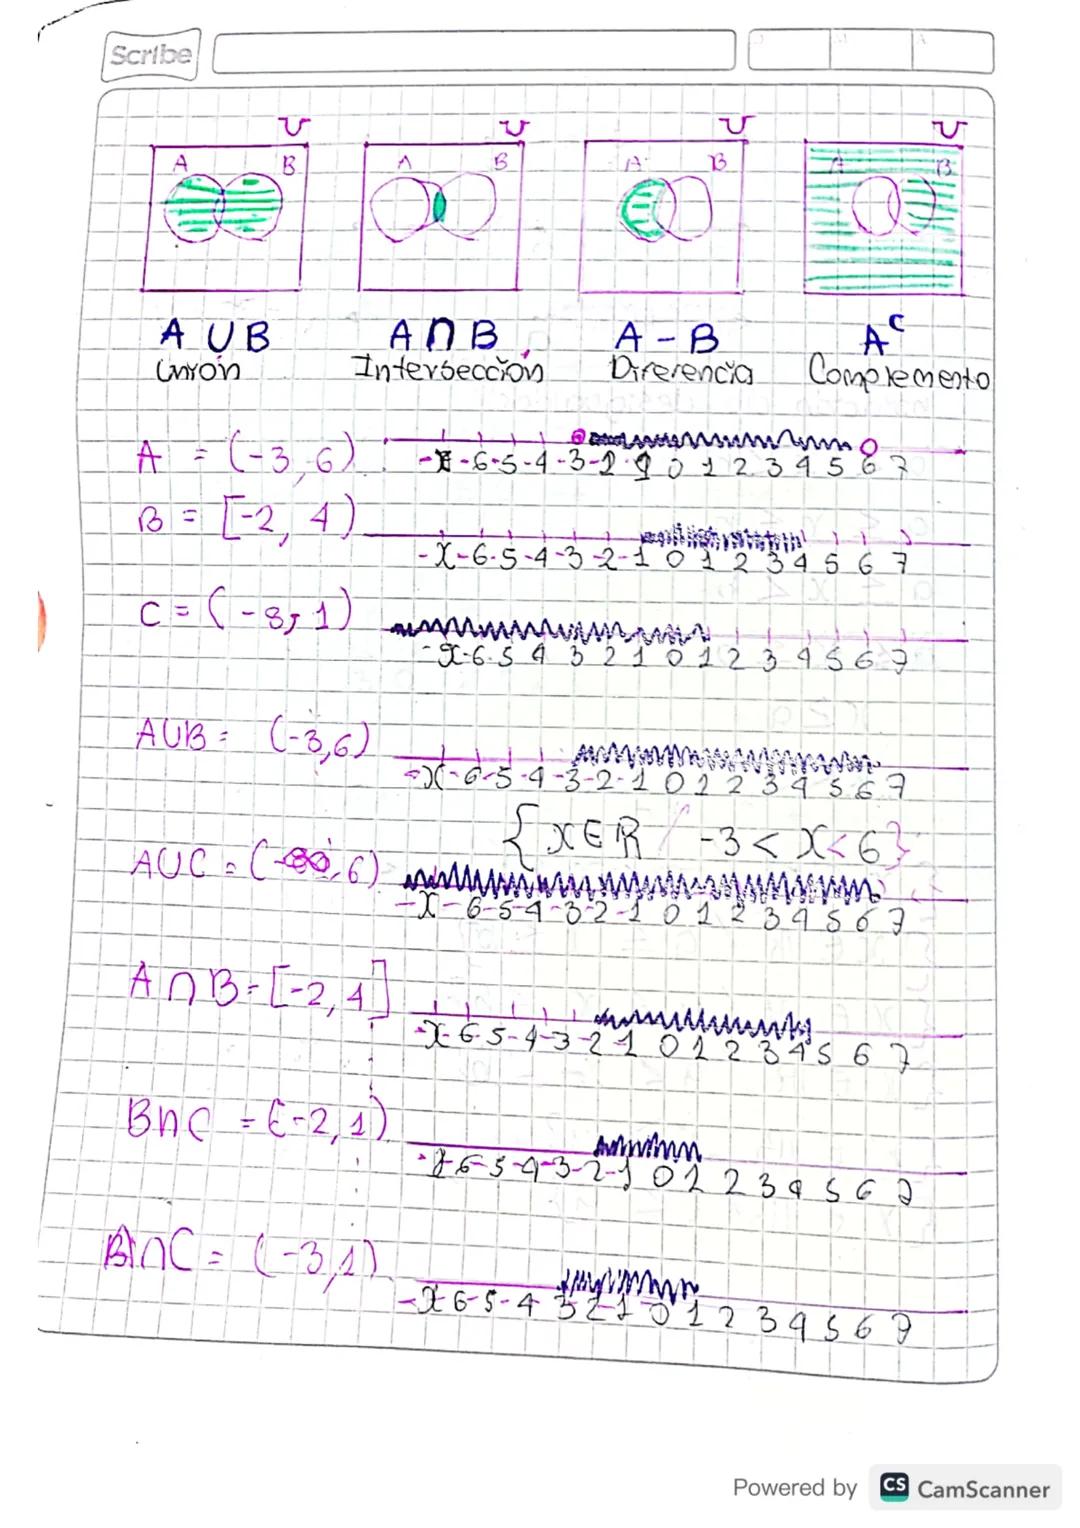 Scribe
U U U U
A B A B A B A B
A ∪ B A ∩ B A - B A^C
Unión Intersección Diferencia Complemento
A = (-3, 6)
-6 -5 -4 -3 -2 0 1 2 3 4 5 6 7
B = [-2, 4)
-X -6 -5 -4 -3 -2 -1 0 1 2 3 4 5 6 7
C = ( , 1)
-X -6 -5 4 3 2 1 0 1 2 3 4 5 6 7
A∪B = (-3,6)
-X -6 -5 -4 -3 -2 -1 0 1 2 3 4 5 6 7
{ X∈ℝ / -3 < X < 6 }
A∪C = (-∞, 6)
-X -6 -5 -4 -3 -2 -1 0 1 2 3 4 5 6 7
A∩B = [-2, 4]
-X -6 -5 -4 -3 -2 -1 0 1 2 3 4 5 6 7
B∩C = [-2, 1)
-6 -5 -4 -3 -2 -1 0 1 2 3 4 5 6 7
∩C = (-3,1)
-X 6 -5 -4 3 2 -1 0 1 2 3 4 5 6 7
Powered by CS CamScanner